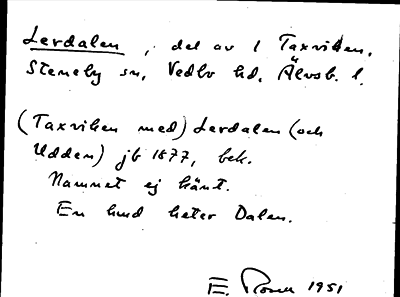 Lerdalen, del av 1 Taxviken,
Steneby sn, Vedbo hd, Älvsb. l.
(Taxviken med) Lerdalen (och
Udden) jb 1877, bek.
Namnet ej känt.
En hmd heter Dalen.
E. Rosell 1951